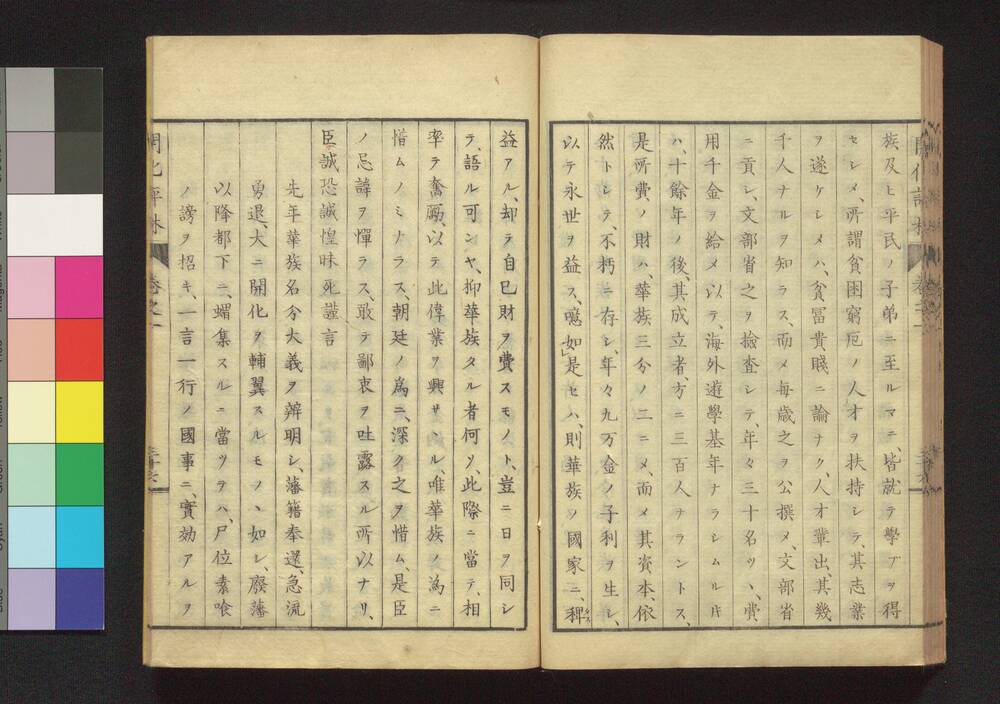 族及ヒ平民ノ子弟ニ至ルマニ、皆就テ學ブヲ得
セシメ、所謂貧困窮厄ノ人才ヲ扶持シテ、其志業
ヲ遂ケシメハ、貧冨貴賤ニ論ナク、人才輩出、其幾
千人ナルヲ知ラス、而メ毎歳之ヲ公撰メ、文部省
ニ貢シ、文部省之ヲ撿査シテ、年々三十名ツヽ、費
用千金ヲ給メ以テ、海外遊學基年ナラシムルキ
ハ、十餘年ノ後、其成立者、方ニ三百人ナラントス、
是所費ノ財ハ、華族三分ノ二ニメ、而メ其資本、依
然トシテ、不朽ニ存シ、年々九万金ノ子利ヲ生シ、
以テ永世ヲ益ス、噫如是セハ、則華族ノ國家ニ、稗
益アル、却テ自己財ヲ費スモノト、豈ニ日ヲ同シ
テ、語ル可ンヤ、抑華族タル者何ソ、此際ニ當テ、相
率テ奮勵、以テ此偉業ヲ興サヽル、唯華族ノ為ニ
惜ムノミナラス、朝廷ノ為ニ、深ク之ヲ惜ム、是臣
ノ忌諱ヲ憚ラス、敢テ鄙衷ヲ吐露スル所以ナリ、
臣誠恐誠惶昧死謹言
先年華族名分大義ヲ辨明シ、藩籍奉還、急流
勇退、大ニ開化ヲ輔翼スルモノヽ如シ、廢藩
以降都下ニ、蝟集スルニ當ツテハ、尸位素喰
ノ謗ヲ招キ、一言一行ノ國事ニ、實効アルヲ